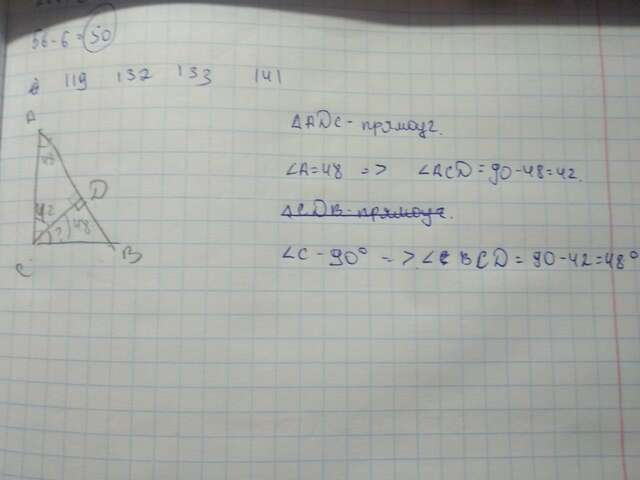 56-6=50
119 132 133 141
A
48
D
42
? 48
C B
△ADC - прямоуг.
∠A=48 => ∠ACD=90-48=42.
△CDB-прямоуг.
∠C-90° => ∠BCD=90-42=48°